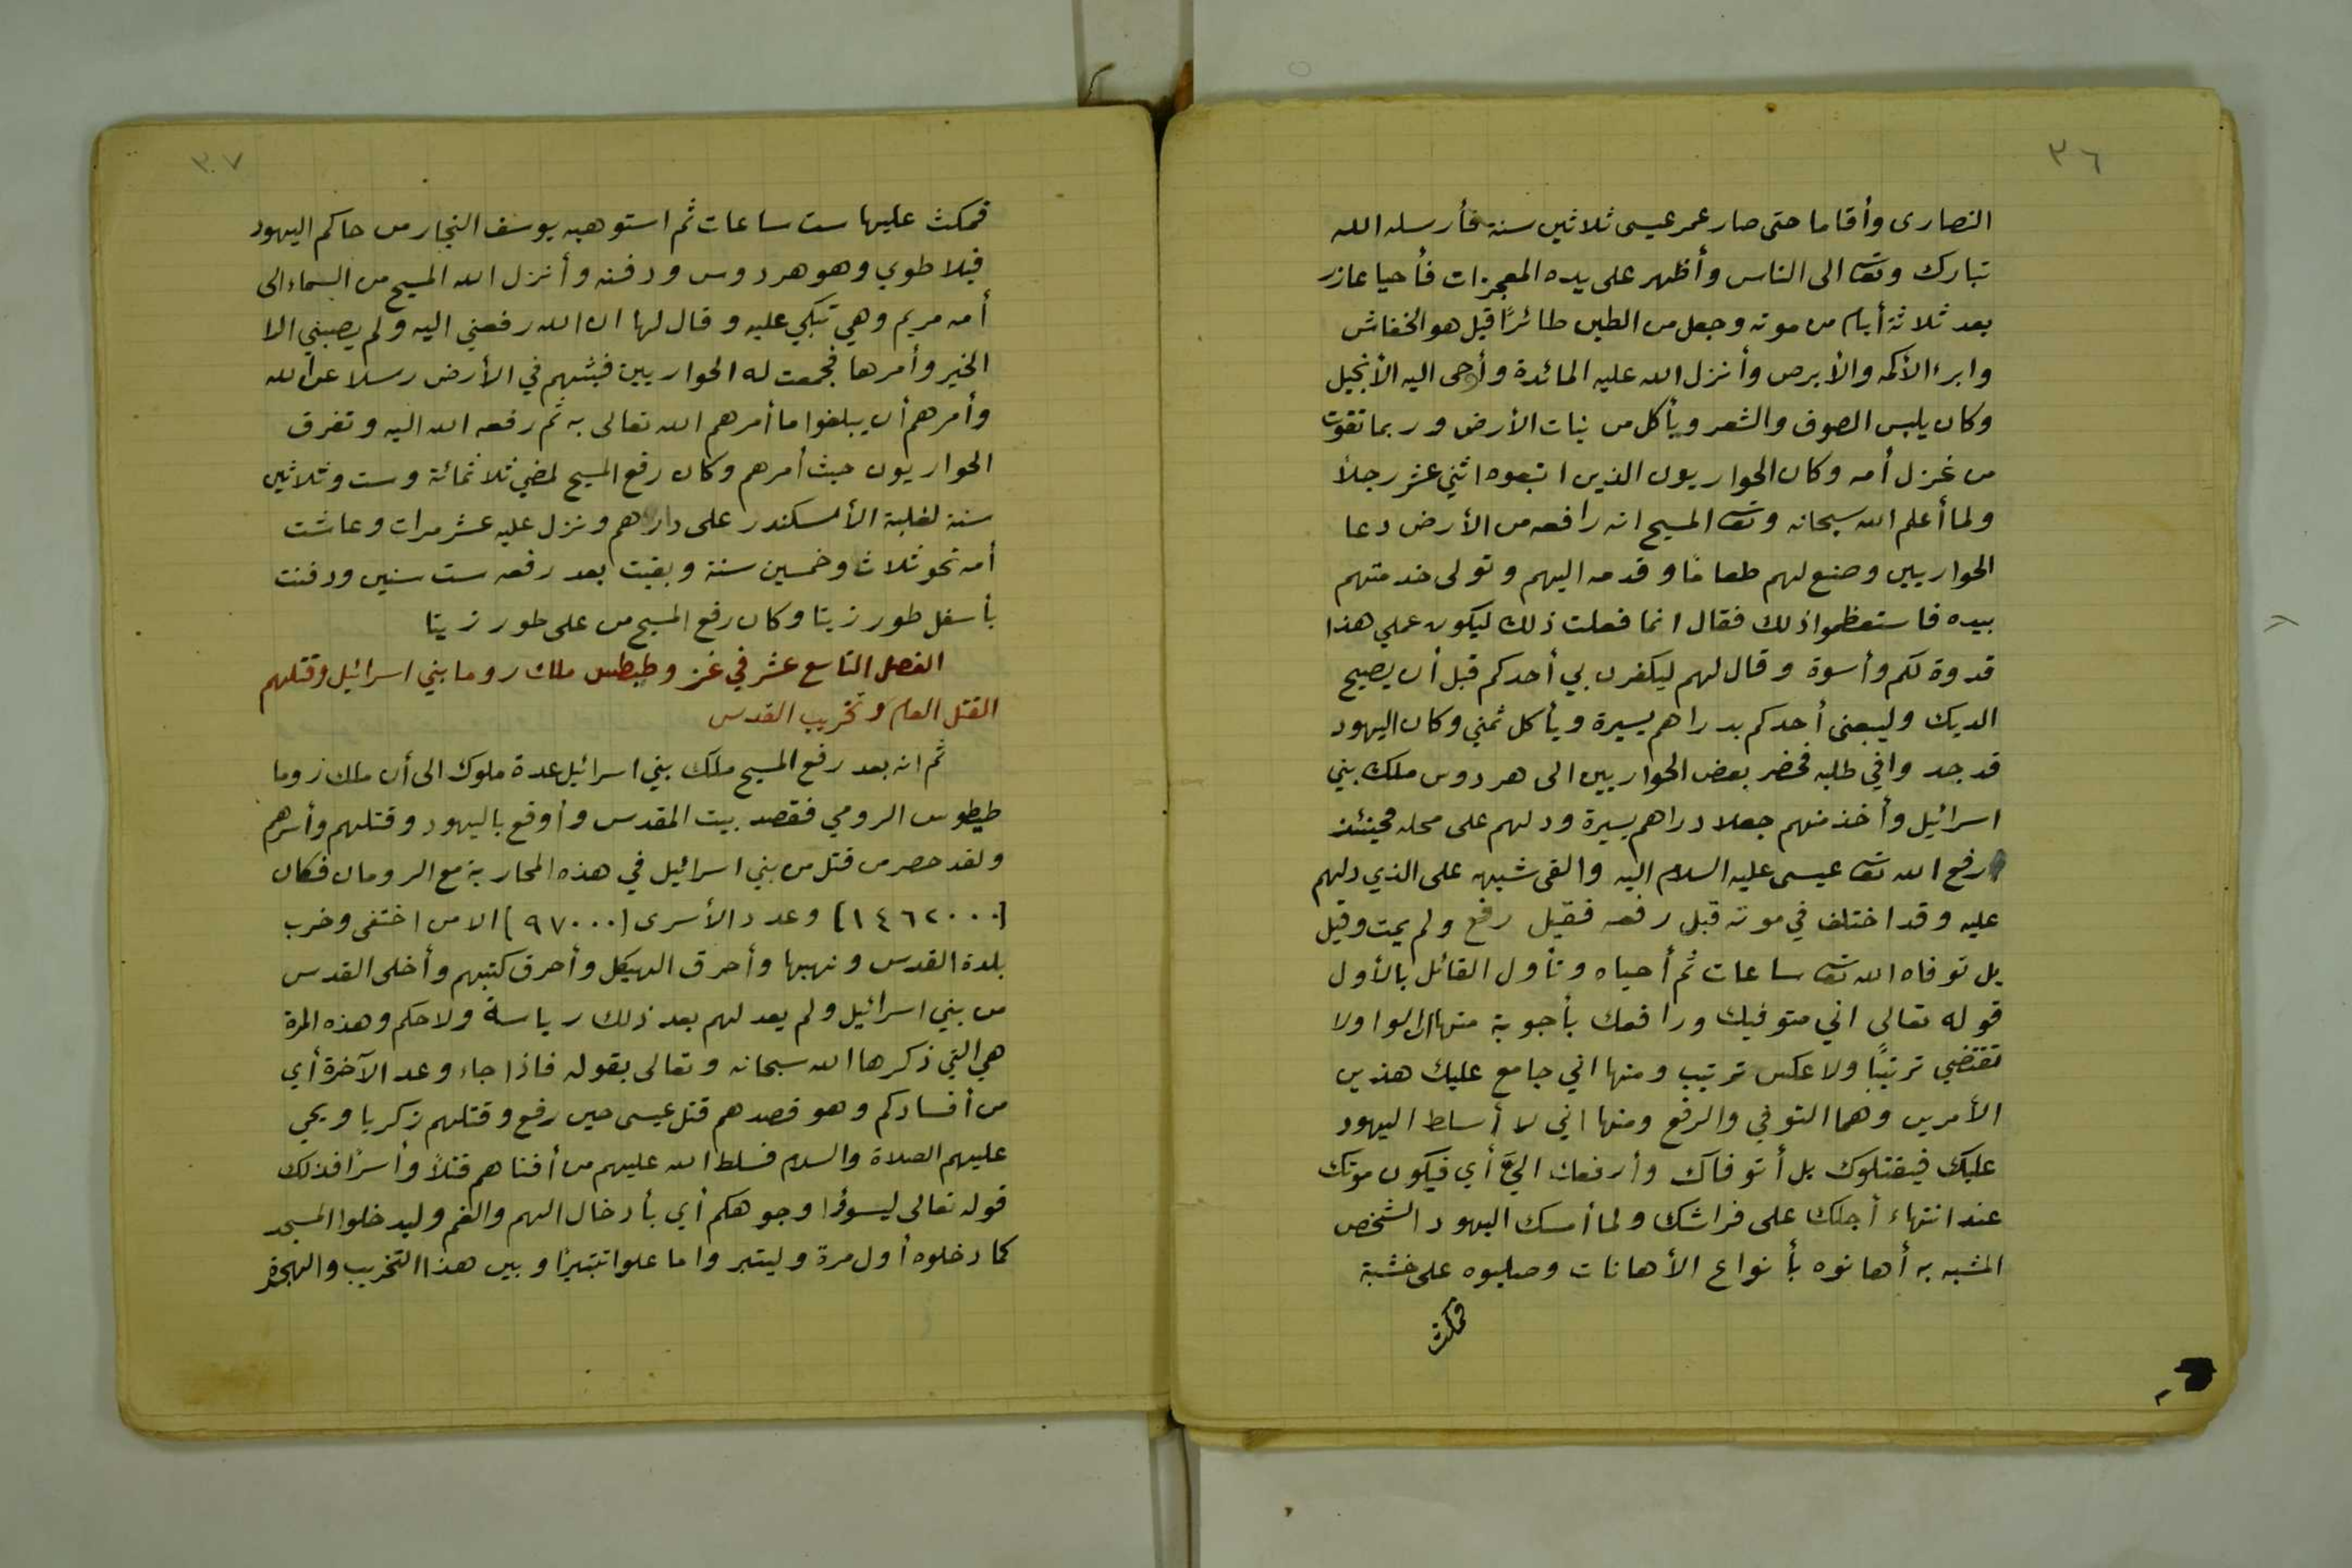 ٣٦
النصارى وأقاما حتى صار عمر عيسى ثلاثين سنة فأرسله الله
تبارك وتعـ الى الناس وأظهر على يده المعجزات فأحيا عازر
بعد ثلاثة أيام من موته وجعل من الطين طائرًا قيل هو الخفاش
وابرء الأكمه والأبرص وأنزل الله عليه المائدة وأوحى اليه الأنجيل
وكان يلبس الصوف والشعر ويأكل من نبات الأرض وربما تقوت
من غزل أمه وكان الحواريون الذين اتبعوه اثني عشر رجلاً
ولما أعلم الله سبحانه وتعـ المسيح انه رافعه من الأرض دعا
الحواريين وصنع لهم طعامًا وقدمه اليهم وتولى خدمتهم
بيده فاستعظموا ذلك فقال انما فعلت ذلك ليكون عملي هذا
قدوة لكم وأسوة وقال لهم ليكفرن بي أحدكم قبل أن يصيح
الديك وليبعني أحدكم بدراهم يسيرة ويأكل ثمني وكان اليهود
قد جدوا في طلبه فحضر بعض الحواريين الى هردوس ملك بني
اسرائيل وأخذ منهم جعلا دراهم يسيرة ودلهم على محله فحينئذ
رفع الله تعـ عيسى عليه السلام اليه والقى شبهه على الذي دلهم
عليه وقد اختلف في موته قبل رفعه فقيل رفع ولم يمت وقيل
بل توفاه الله تعـ ساعات ثم أحياه وتأول القائل بالأول
قوله تعالى اني متوفيك ورافعك بأجوبة منها ان الواو لا
تقتضي ترتيبًا ولا عكس ترتيب ومنها اني جامع عليك هذين
الأمرين وهما التوفي والرفع ومنها اني لا أسلط اليهود
عليك فيقتلوك بل أتوفاك وأرفعك اليَّ أي فيكون موتك
عند انتهاء أجلك على فراشك ولما أمسك اليهود الشخص
المشبه به أهانوه بأنواع الأهانات وصلبوه على خشبة
فمكث
٣٧
فمكث عليها ست ساعات ثم استوهبه يوسف النجار من حاكم اليهود
فيلاطوي وهو هردوس ودفنه وأنزل الله المسيح من السماء الى
أمه مريم وهي تبكي عليه وقال لها ان الله رفعني اليه ولم يصبني الا
الخير وأمرها فجمعت له الحواريين فبثهم في الأرض رسلا عن الله
وأمرهم أن يبلغوا ما أمرهم الله تعالى به ثم رفعه الله اليه وتفرق
الحواريون حيث أمرهم وكان رفع المسيح لمضي ثلاثمائة وست وثلاثين
سنة لغلبة الأسكندر على دارهم ونزل عليه عشر مرات وعاشت
أمه نحو ثلاث وخمسين سنة وبقيت بعد رفعه ست سنين ودفنت
بأسفل طور زيتا وكان رفع المسيح من على طور زيتا
الفصل التاسع عشر في غزو طيطس ملك روما بني اسرائيل وقتلهم
القتل العام وتخريب القدس
ثم انه بعد رفع المسيح ملك بني اسرائيل عدة ملوك الى أن ملك روما
طيطوس الرومي فقصد بيت المقدس وأوقع باليهود وقتلهم وأسرهم
ولقد حصر من قتل من بني اسرائيل في هذه المحاربة مع الرومان فكان
(١٤٦٢٠٠٠) وعدد الأسرى (٩٧٠٠٠) الا من اختفى وخرب
بلدة القدس ونهبها وأحرق الهيكل وأحرق كتبهم وأخلى القدس
من بني اسرائيل ولم يعد لهم بعد ذلك رياسة ولا حكم وهذه المرة
هي التي ذكرها الله سبحانه وتعالى بقوله فاذا جاء وعد الآخرة أي
من أفسادكم وهو قصدهم قتل عيسى حين رفع وقتلهم زكريا ويحي
عليهم الصلاة والسلام فسلط الله عليهم من أفناهم قتلاً وأسرًا فذلك
قوله تعالى ليسوؤا وجوهكم أي بأدخال الهم والغم وليدخلوا المسجد
كما دخلوه أول مرة وليتبروا ما علوا تتبيرًا وبين هذا التخريب والهجرة